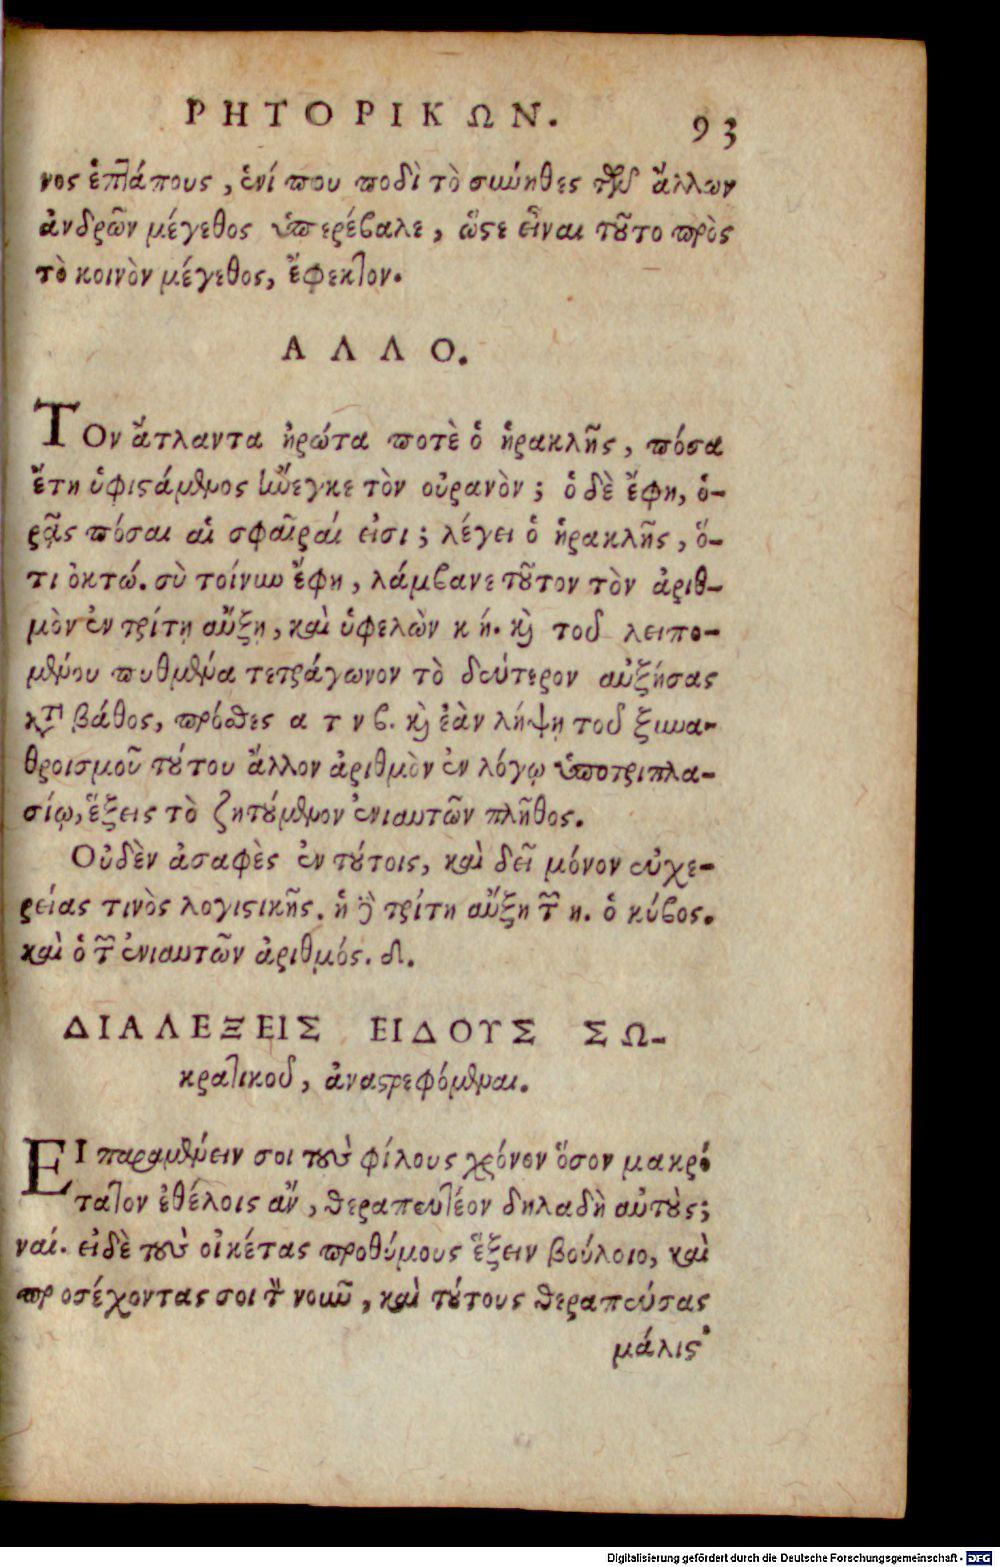 ΡΗΤΟΡΙΚΩΝ. 93
νος ἑπτάπους, ἑνί που ποδὶ τὸ σωύηθες τῶν ἄλλων
ἀνδρῶν μέγεθος ὑπερέβαλε, ὥστε εἶναι τοῦτο πρὸς
τὸ κοινὸν μέγεθος, ἔφεκτον.
ΑΛΛΟ.
ΤΟν ἄτλαντα ἠρώτα ποτὲ ὁ ἡρακλῆς, πόσα
ἔτη ὑφιστάμενος ἤνεγκε τὸν οὐρανὸν; ὁ δὲ ἔφη, ὁ-
ρᾷς πόσαι αἱ σφαῖραί εἰσι; λέγει ὁ ἡρακλῆς, ὅ-
τι ὀκτώ. σὺ τοίνυν ἔφη, λάμβανε τοῦτον τὸν ἀριθ-
μὸν ἐν τρίτῃ αὔξῃ, καὶ ὑφελὼν κ ή. καὶ τοῦ λειπο-
μένου πυθμένα τετράγωνον τὸ δεύτερον αὐξήσας
κατὰ βάθος, πρόσθες α τ ν β. καὶ ἐὰν λήψῃ τοῦ ξυνα-
θροισμοῦ τούτου ἄλλον ἀριθμὸν ἐν λόγῳ ὑποτριπλα-
σίῳ, ἕξεις τὸ ζητούμενον ἐνιαυτῶν πλῆθος.
Οὐδὲν ἀσαφὲς ἐν τούτοις, καὶ δεῖ μόνον εὐχε-
ρείας τινὸς λογιστικῆς. ἡ γὰρ τρίτη αὔξη τῶν η. ὁ κύβος.
καὶ ὁ τῶν ἐνιαυτῶν ἀριθμός. δ.
ΔΙΑΛΕΞΕΙΣ ΕΙΔΟΥΣ ΣΩ-
κρατικοῦ, ἀναστρεφόμεναι.
ΕΙ παραμένειν σοι τοὺς φίλους χρόνον ὅσον μακρό
τατον ἐθέλοις ἄν, θεραπευτέον δηλαδὴ αὐτούς;
ναί. εἰδὲ τοὺς οἰκέτας προθύμους ἕξειν βούλοιο, καὶ
προσέχοντας σοι τὸν νοῦν, καὶ τούτους θεραπεύσας
μάλιστ
Digitalisierung gefördert durch die Deutsche Forschungsgemeinschaft - DFG